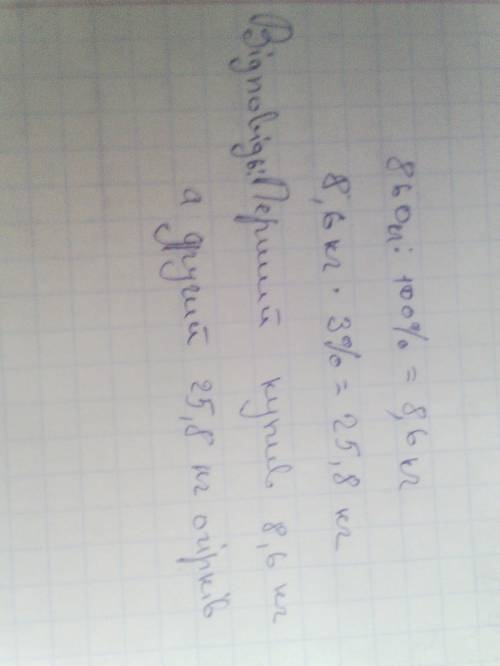 860ц: 100% = 8,6 кг
8,6 кг · 3% = 25,8 кг
Відповідь: Перший купив 8,6 кг
а другий 25,8 кг огірків